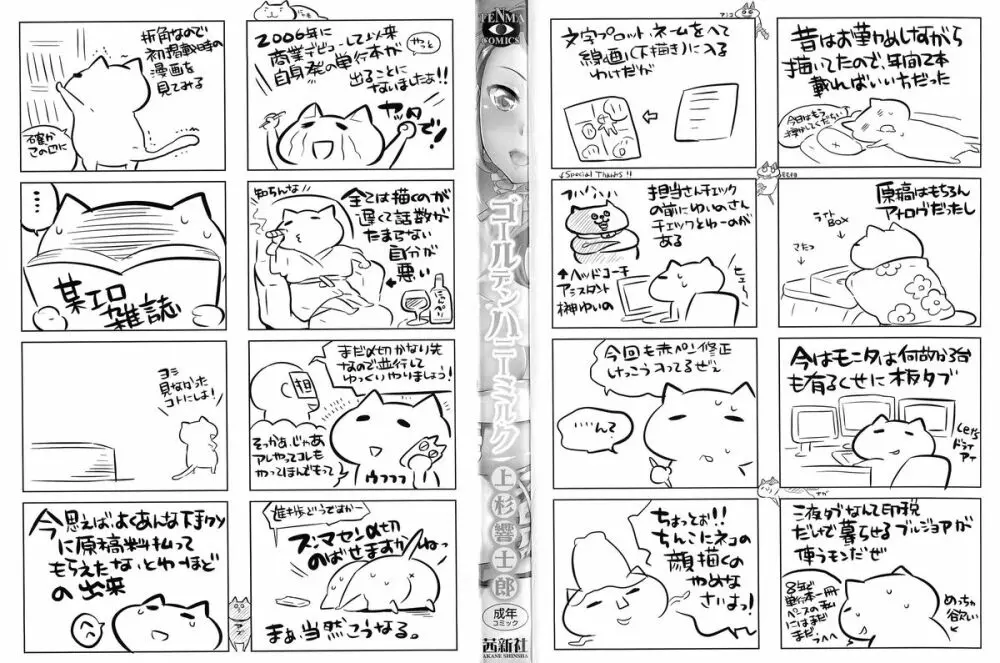 昔はお勤めしながら
描いてたので、年間2本
載ればいい方だった
今日はもう
寝かしてください
原稿はもちろん
アナログだったし
ライト
BOX
こたつ
今はモニタは何故か3台
も有るくせに板タブ
液タブなんて印税
だけで暮らせるブルジョアが
使うモンだぜ
8年で
単行本一冊
ペースの私
にはまだ
まだ
めっちゃ
欲しい
文字プロット、ネームをへて
線画(下描き)に入る
わけだが
↓Special Thanks!!
担当さんチェック
の前にゆいのさん
チェックとゆーのが
ある
↑ヘッドコーチ
アシスタント
榊ゆいの
今回も赤ペン修正
けっこう入ってるぜぇ
……んて
ちょっとお!!
ちんこにネコの
顔描くの
やめな
さいよっ!
TENMA
COMICS
ゴールデンハニーミルク
上杉響士郎
成年
コミック
茜新社
AKANE SHINSHA
2006年に
商業デビューして以来
やっと
自身発の単行本が
出ることに
なりましたぁ!!
ヤッタ
で!
知らんな
全ては描くのが
遅くて話数が
たまらない
自分が
悪い
まだ〆切かなり先
なので並行して
ゆっくりやりましょう!
担
そっかぁ、じゃぁ
アレやってコレも
やってほんでもって
ウフフフ
進捗どうですかー
ズ:マセン〆切
のばせますか
ねっ
まぁ当然こうなる。
折角なので
初掲載時の
漫画を
見てみる
確か
この辺に
…
某エロ
雑誌
ヨシ
見なかった
コトにしよ!
今思えばよくあんな下手クソ
に原稿料払って
もらえたないとゆーほど
の出来